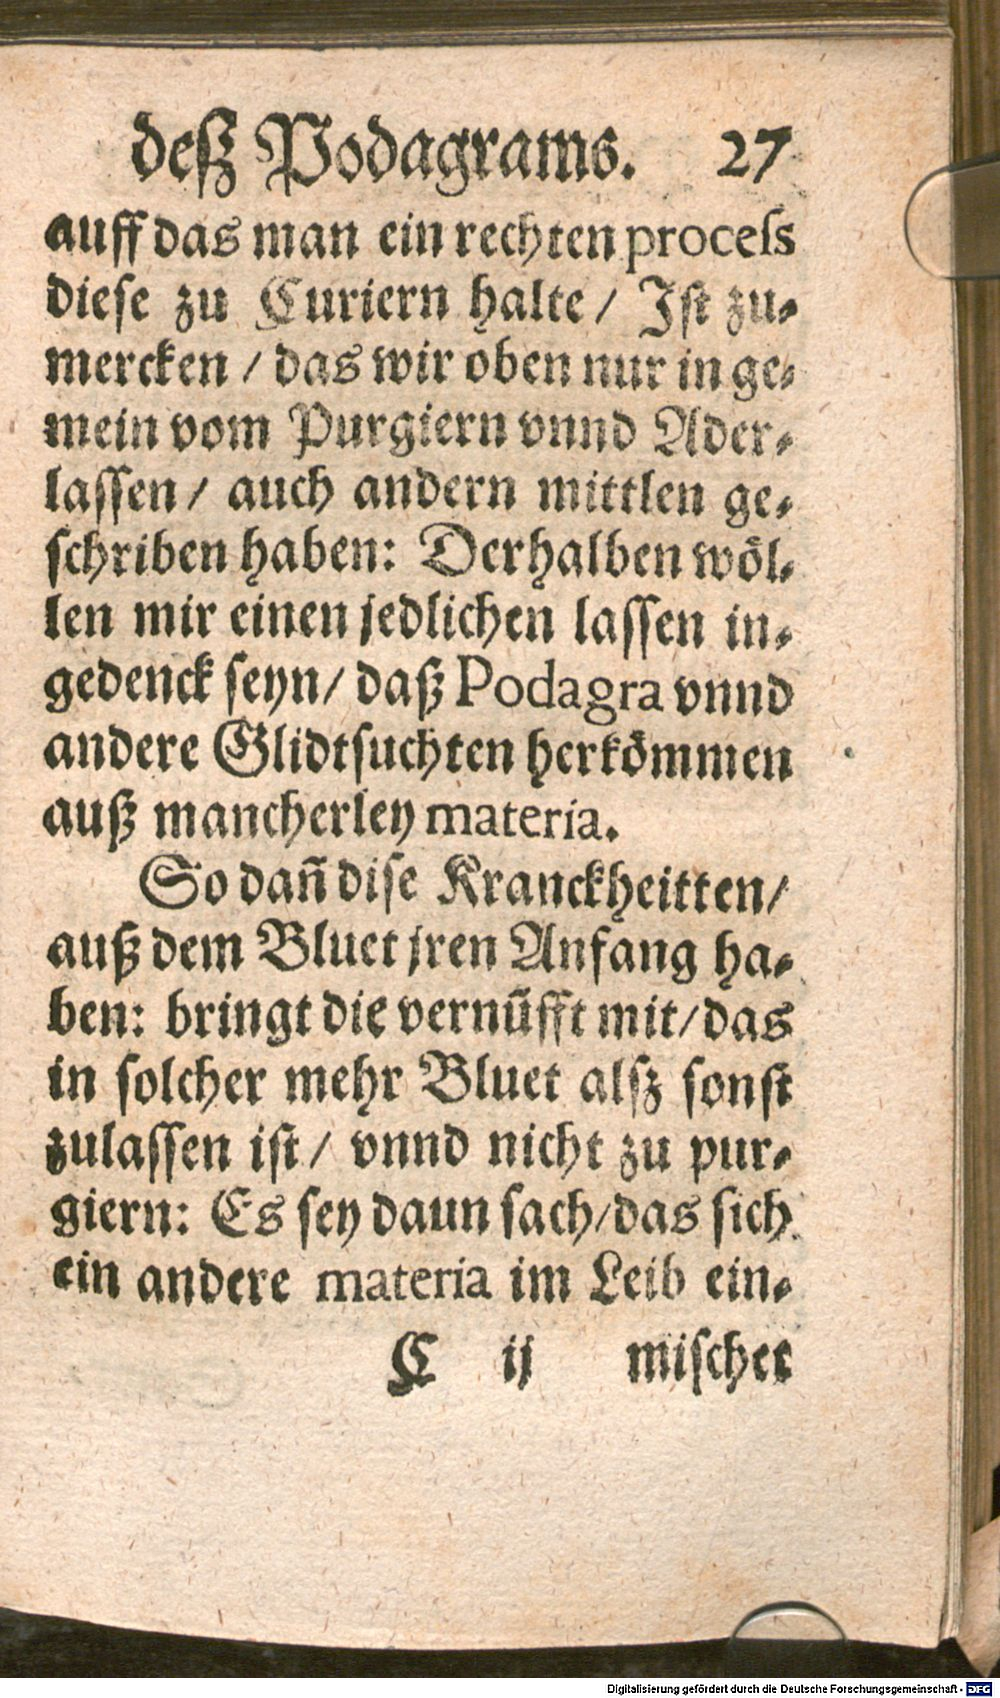 deſz Podagrams. 27
auff das man ein rechten proceſs
dieſe zu Curiern halte / Iſt zu⸗
mercken / das wir oben nur in ge⸗
mein vom Purgiern vnnd Ader⸗
laſſen / auch andern mittlen ge⸗
ſchriben haben: Derhalben wöl⸗
len mir einen jedlichen laſſen in⸗
gedenck ſeyn / daß Podagra vnnd
andere Glidtſuchten herkömmen
auß mancherley materia.
So dañ diſe Kranckheitten /
auß dem Bluet jren Anfang ha⸗
ben: bringt die vernüfft mit / das
in ſolcher mehr Bluet alſz ſonſt
zulaſſen iſt / vnnd nicht zu pur⸗
giern: Es ſey daun ſach / das ſich
ein andere materia im Leib ein⸗
C ij miſchet
Digitalisierung gefördert durch die Deutsche Forschungsgemeinschaft - DFG